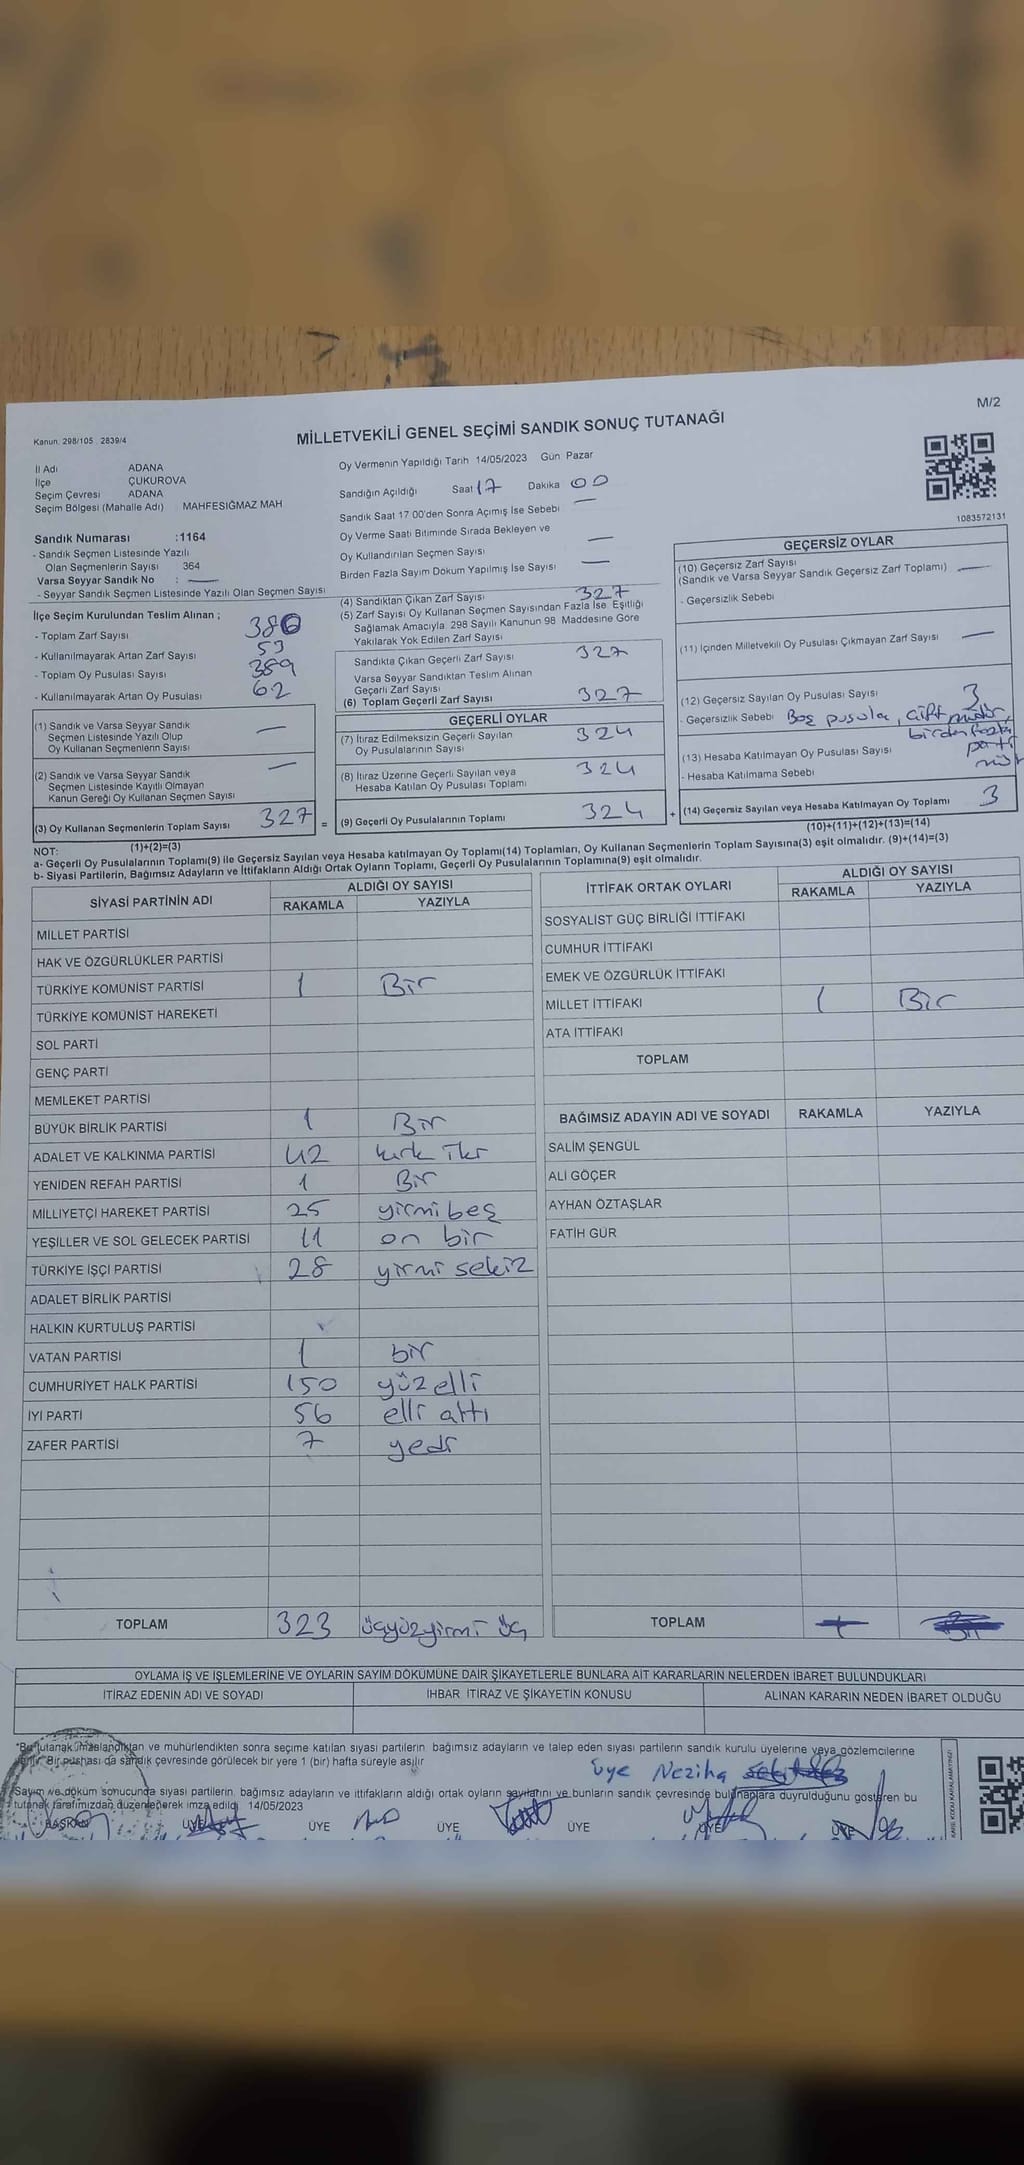 M/2
Kanun. 298/105 2839/4
MİLLETVEKİLİ GENEL SEÇİMİ SANDIK SONUÇ TUTANAĞI
İl Adı ADANA
İlçe ÇUKUROVA
Seçim Çevresi ADANA
Seçim Bölgesi (Mahalle Adı) MAHFESIĞMAZ MAH
Sandık Numarası :1164
- Sandık Seçmen Listesinde Yazılı
Olan Seçmenlerin Sayısı 364
Varsa Seyyar Sandık No : —
- Seyyar Sandık Seçmen Listesinde Yazılı Olan Seçmen Sayısı
Oy Vermenin Yapıldığı Tarih 14/05/2023 Gün Pazar
Sandığın Açıldığı Saat 17 Dakika 00
Sandık Saat 17 00'den Sonra Açımış İse Sebebi —
Oy Verme Saati Bitiminde Sırada Bekleyen ve
Oy Kullandırılan Seçmen Sayısı —
Birden Fazla Sayım Döküm Yapılmış İse Sayısı —
1083572131
İlçe Seçim Kurulundan Teslim Alınan ;
- Toplam Zarf Sayısı 380
- Kullanılmayarak Artan Zarf Sayısı 53
- Toplam Oy Pusulası Sayısı 389
- Kullanılmayarak Artan Oy Pusulası 62
(1) Sandık ve Varsa Seyyar Sandık
Seçmen Listesinde Yazılı Olup
Oy Kullanan Seçmenlerin Sayısı —
(2) Sandık ve Varsa Seyyar Sandık
Seçmen Listesinde Kayıtlı Olmayan
Kanun Gereği Oy Kullanan Seçmen Sayısı —
(3) Oy Kullanan Seçmenlerin Toplam Sayısı 327 =
(1)+(2)=(3)
(4) Sandıktan Çıkan Zarf Sayısı 327
(5) Zarf Sayısı Oy Kullanan Seçmen Sayısından Fazla İse Eşitliği
Sağlamak Amacıyla 298 Sayılı Kanunun 98 Maddesine Göre
Yakılarak Yok Edilen Zarf Sayısı
Sandıkta Çıkan Geçerli Zarf Sayısı 327
Varsa Seyyar Sandıktan Teslim Alınan
Geçerli Zarf Sayısı
(6) Toplam Geçerli Zarf Sayısı 327
GEÇERLİ OYLAR
(7) İtiraz Edilmeksizin Geçerli Sayılan
Oy Pusulalarının Sayısı 324
(8) İtiraz Üzerine Geçerli Sayılan veya
Hesaba Katılan Oy Pusulası Toplamı 324
(9) Geçerli Oy Pusulalarının Toplamı 324 +
GEÇERSİZ OYLAR
(10) Geçersiz Zarf Sayısı
(Sandık ve Varsa Seyyar Sandık Geçersiz Zarf Toplamı) —
- Geçersizlik Sebebi
(11) İçinden Milletvekili Oy Pusulası Çıkmayan Zarf Sayısı —
(12) Geçersiz Sayılan Oy Pusulası Sayısı 3
- Geçersizlik Sebebi Boş pusula, çift mühür,
birden fazla
parti
(13) Hesaba Katılmayan Oy Pusulası Sayısı
- Hesaba Katılmama Sebebi
(14) Geçersiz Sayılan veya Hesaba Katılmayan Oy Toplamı 3
(10)+(11)+(12)+(13)=(14)
NOT:
a- Geçerli Oy Pusulalarının Toplamı(9) ile Geçersiz Sayılan veya Hesaba katılmayan Oy Toplamı(14) Toplamları, Oy Kullanan Seçmenlerin Toplam Sayısına(3) eşit olmalıdır. (9)+(14)=(3)
b- Siyasi Partilerin, Bağımsız Adayların ve İttifakların Aldığı Ortak Oyların Toplamı, Geçerli Oy Pusulalarının Toplamına(9) eşit olmalıdır.
SİYASİ PARTİNİN ADI ALDIĞI OY SAYISI
RAKAMLA YAZIYLA
MİLLET PARTİSİ
HAK VE ÖZGÜRLÜKLER PARTİSİ
TÜRKİYE KOMÜNİST PARTİSİ 1 Bir
TÜRKİYE KOMÜNİST HAREKETİ
SOL PARTİ
GENÇ PARTİ
MEMLEKET PARTİSİ
BÜYÜK BİRLİK PARTİSİ 1 Bir
ADALET VE KALKINMA PARTİSİ 42 kırk iki
YENİDEN REFAH PARTİSİ 1 Bir
MİLLİYETÇİ HAREKET PARTİSİ 25 yirmi beş
YEŞİLLER VE SOL GELECEK PARTİSİ 11 on bir
TÜRKİYE İŞÇİ PARTİSİ 28 yirmi sekiz
ADALET BİRLİK PARTİSİ
HALKIN KURTULUŞ PARTİSİ
VATAN PARTİSİ 1 bir
CUMHURİYET HALK PARTİSİ 150 yüz elli
İYİ PARTİ 56 elli altı
ZAFER PARTİSİ 7 yedi
TOPLAM 323 üçyüzyirmi üç
İTTİFAK ORTAK OYLARI ALDIĞI OY SAYISI
RAKAMLA YAZIYLA
SOSYALİST GÜÇ BİRLİĞİ İTTİFAKI
CUMHUR İTTİFAKI
EMEK VE ÖZGÜRLÜK İTTİFAKI
MİLLET İTTİFAKI 1 Bir
ATA İTTİFAKI
TOPLAM
BAĞIMSIZ ADAYIN ADI VE SOYADI RAKAMLA YAZIYLA
SALİM ŞENGÜL
ALİ GÖÇER
AYHAN ÖZTAŞLAR
FATİH GÜR
TOPLAM
OYLAMA İŞ VE İŞLEMLERİNE VE OYLARIN SAYIM DÖKÜMÜNE DAİR ŞİKAYETLERLE BUNLARA AİT KARARLARIN NELERDEN İBARET BULUNDUKLARI
İTİRAZ EDENİN ADI VE SOYADI İHBAR İTİRAZ VE ŞİKAYETİN KONUSU ALINAN KARARIN NEDEN İBARET OLDUĞU
*Bu tutanak imzalandıktan ve mühürlendikten sonra seçime katılan siyasi partilerin bağımsız adayların ve talep eden siyasi partilerin sandık kurulu üyelerine veya gözlemcilerine
verilir. Bir nüshası da sandık çevresinde görülecek bir yere 1 (bir) hafta süreyle asılır
üye Neziha
Sayım ve döküm sonucunda siyasi partilerin, bağımsız adayların ve ittifakların aldığı ortak oyların sayılarını ve bunların sandık çevresinde bulunanlara duyrulduğunu gösteren bu
tutanak tarafımızdan düzenlenerek imza edildi 14/05/2023
BAŞKAN ÜYE ÜYE ÜYE ÜYE ÜYE ÜYE